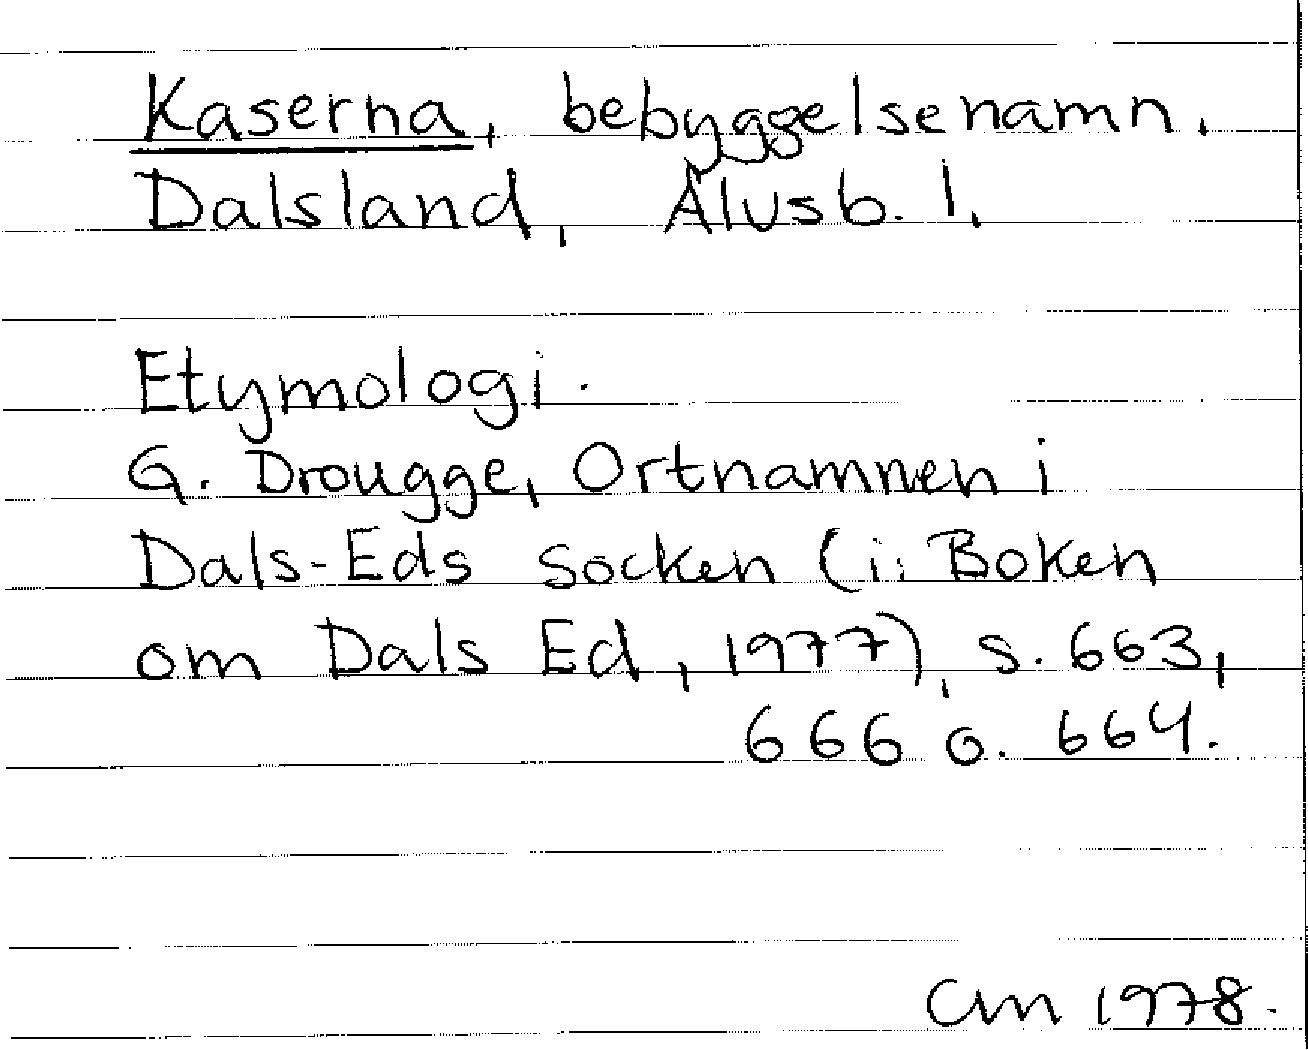 Kaserna, bebyggelsenamn.
Dalsland, Älvsb. l.
Etymologi.
G. Drougge, Ortnamnen i
Dals-Eds socken (i: Boken
om Dals Ed, 1977), s. 663,
666 o. 664.
CM 1978.